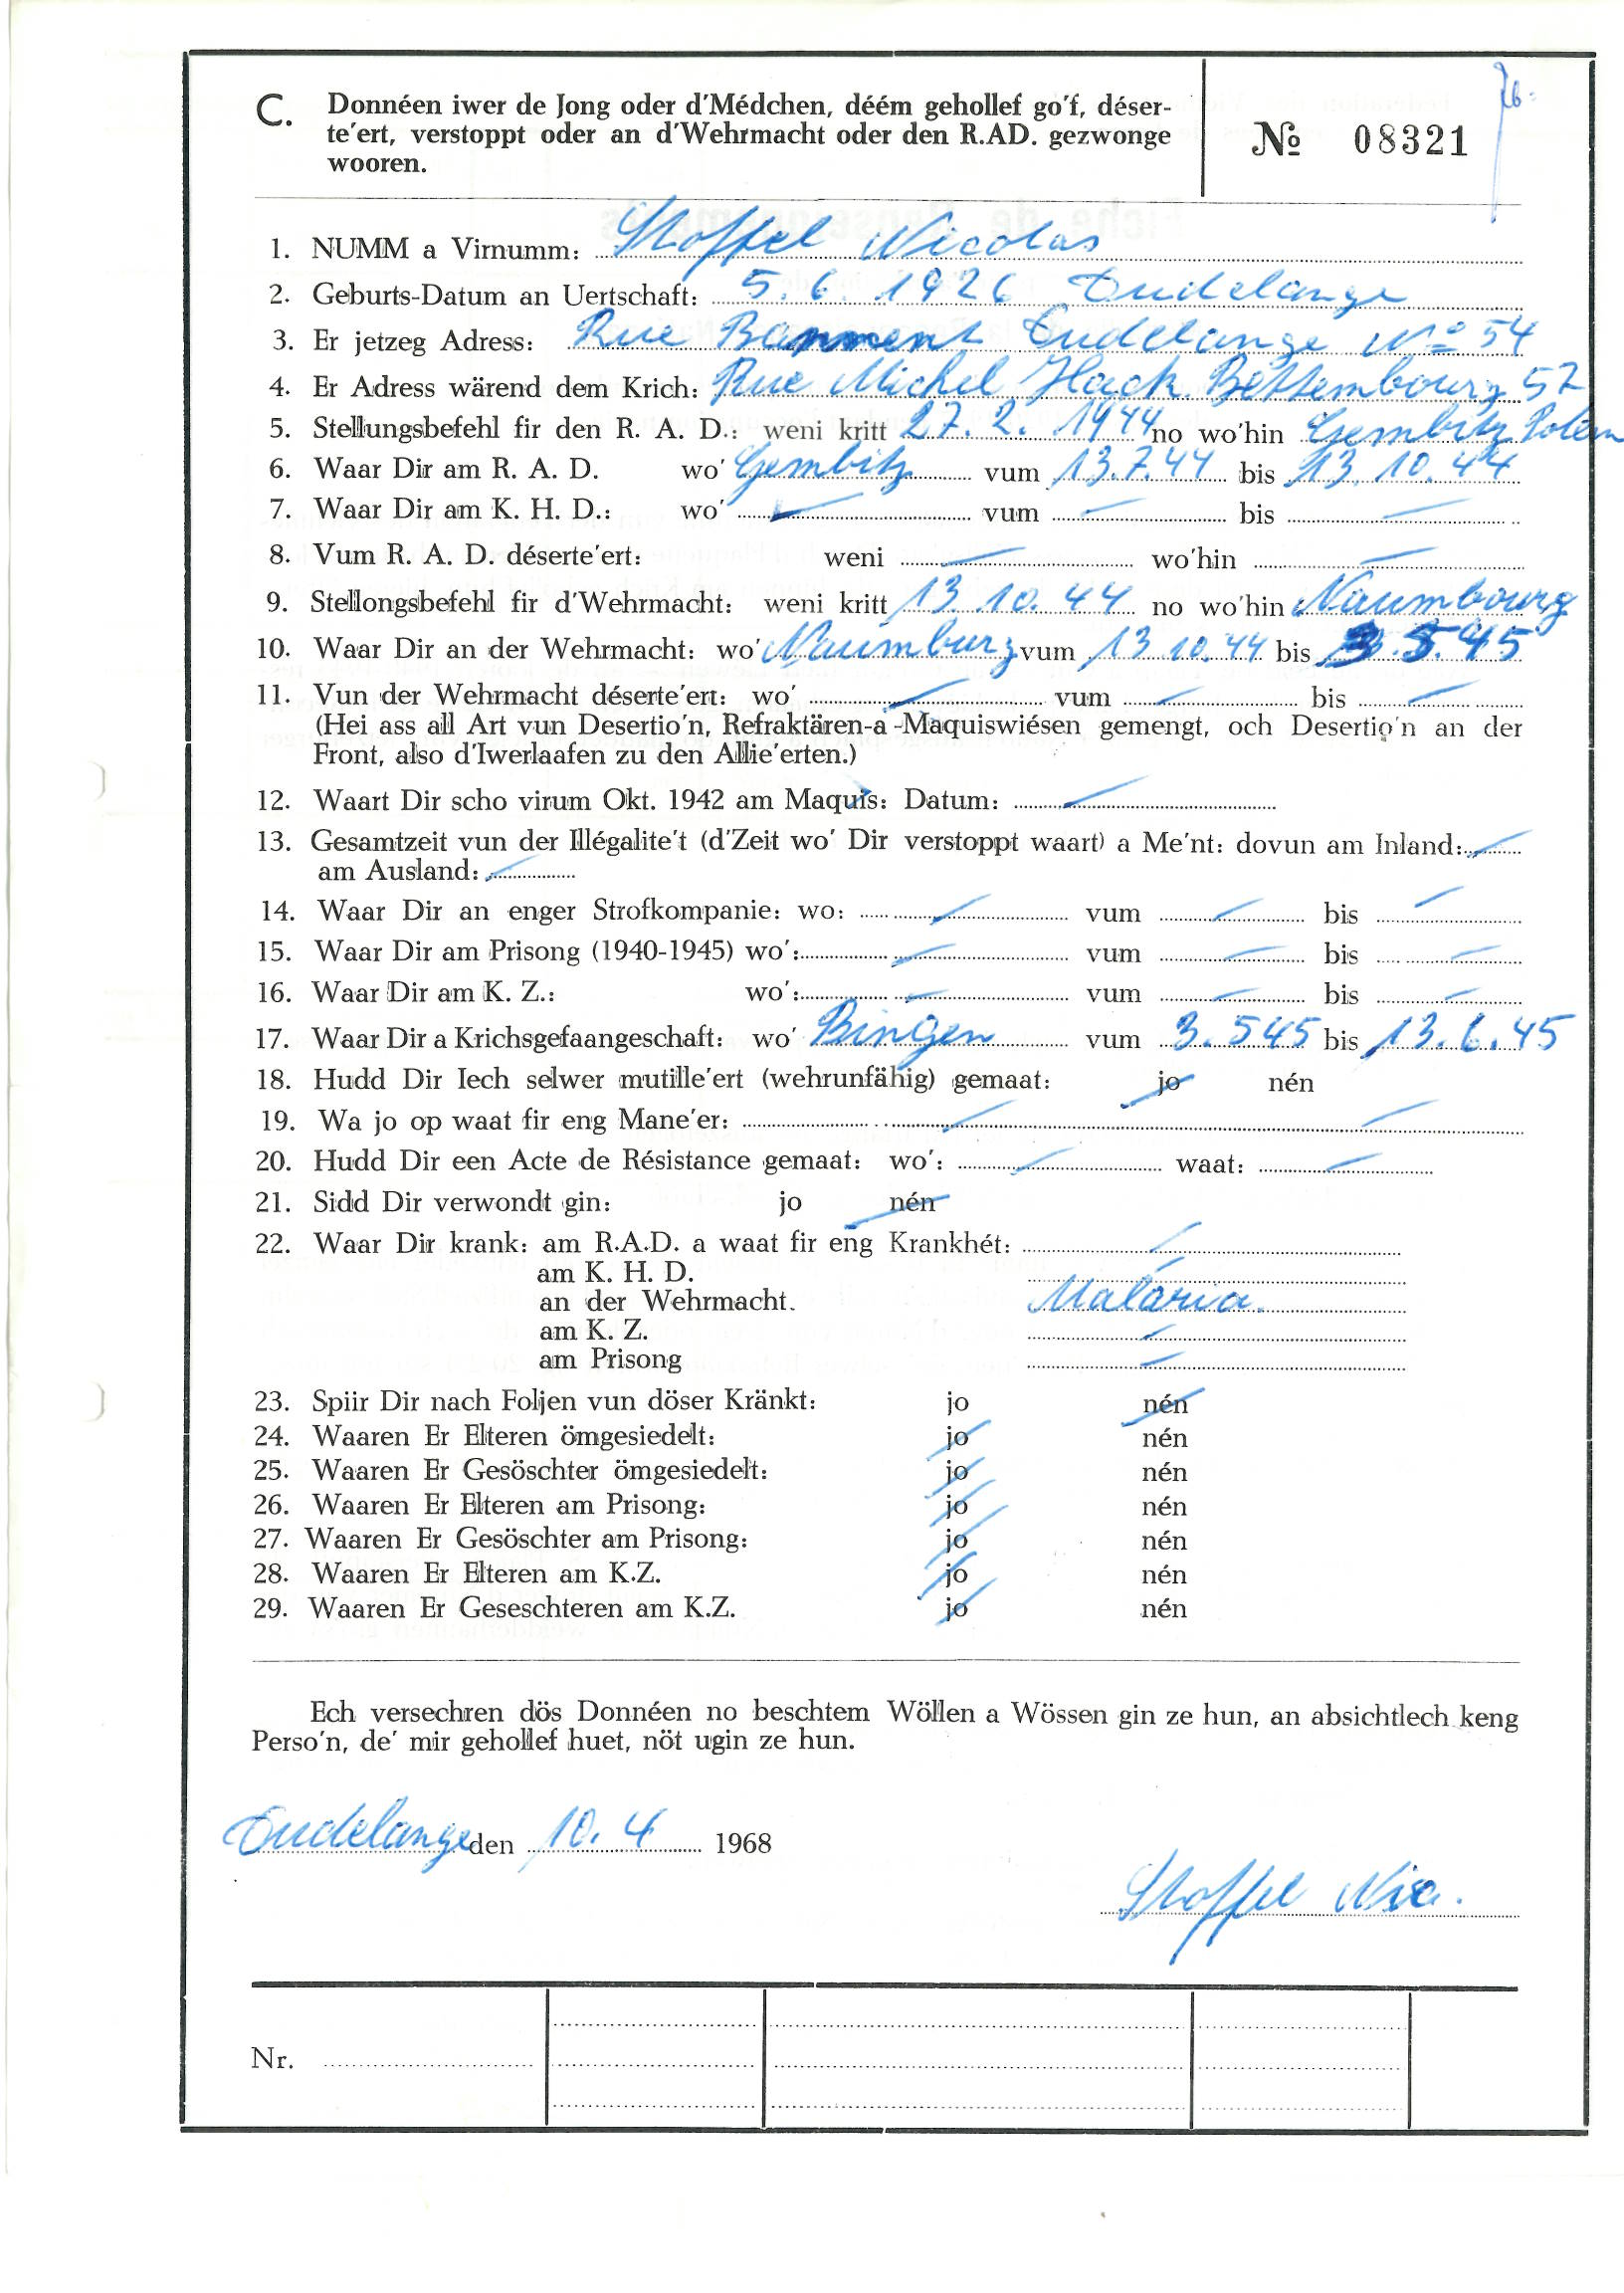 C. Donnéen iwer de Jong oder d'Médchen, déém gehollef go'f, déser-
te'ert, verstoppt oder an d'Wehrmacht oder den R.AD. gezwonge
wooren.
№ 08321
1. NUMM a Virnumm: Stoffel Nicolas
2. Geburts-Datum an Uertschaft: 5.6.1926 Dudelange
3. Er jetzeg Adress: Rue Dudelange No 54
4. Er Adress wärend dem Krich: Rue Michel Hack Bettembourg 57
5. Stellungsbefehl fir den R. A. D.: weni kritt 27.2.1944 no wo'hin Gembitz Polen
6. Waar Dir am R. A. D. wo' Gembitz vum 13.7.44 bis 13.10.44
7. Waar Dir am K. H. D.: wo' — vum — bis —
8. Vum R. A. D. déserte'ert: weni — wo'hin —
9. Stellongsbefehl fir d'Wehrmacht: weni kritt 13.10.44 no wo'hin Naumbourg
10. Waar Dir an der Wehrmacht: wo' Naumburg vum 13.10.44 bis 3.5.45
11. Vun der Wehrmacht déserte'ert: wo' — vum — bis —
(Hei ass all Art vun Desertio'n, Refraktären-a -Maquiswiésen gemengt, och Desertio'n an der
Front, also d'Iwerlaafen zu den Allie'erten.)
12. Waart Dir scho virum Okt. 1942 am Maquis: Datum: —
13. Gesamtzeit vun der Illégalite't (d'Zeit wo' Dir verstoppt waart) a Me'nt: dovun am Inland: —
am Ausland: —
14. Waar Dir an enger Strofkompanie: wo: — vum — bis —
15. Waar Dir am Prisong (1940-1945) wo': — vum — bis —
16. Waar Dir am K. Z.: wo': — vum — bis —
17. Waar Dir a Krichsgefaangeschaft: wo' Bingen vum 3.545 bis 13.6.45
18. Hudd Dir Iech selwer mutille'ert (wehrunfähig) gemaat: jo nén
19. Wa jo op waat fir eng Mane'er: — —
20. Hudd Dir een Acte de Résistance gemaat: wo': — waat: —
21. Sidd Dir verwondt gin: jo nén
22. Waar Dir krank: am R.A.D. a waat fir eng Krankhét: —
am K. H. D. —
an der Wehrmacht. Malaria.
am K. Z. —
am Prisong —
23. Spiir Dir nach Foljen vun döser Kränkt: jo nén
24. Waaren Er Elteren ömgesiedelt: jo nén
25. Waaren Er Gesöschter ömgesiedelt: jo nén
26. Waaren Er Elteren am Prisong: jo nén
27. Waaren Er Gesöschter am Prisong: jo nén
28. Waaren Er Elteren am K.Z. jo nén
29. Waaren Er Geseschteren am K.Z. jo nén
Ech versechren dös Donnéen no beschtem Wöllen a Wössen gin ze hun, an absichtlech keng
Perso'n, de' mir gehollef huet, nöt ugin ze hun.
Dudelange den 10.4 1968
Stoffel Nic.
Nr.